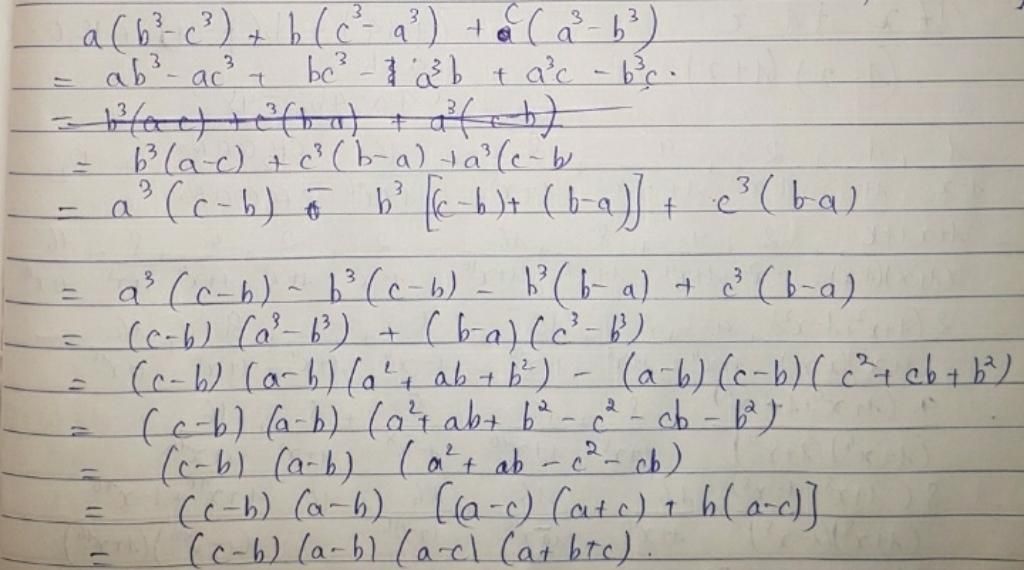 a(b³-c³) + b(c³-a³) + c(a³-b³)
= ab³ - ac³ + bc³ - a³b + a³c - b³c.
= b³(a-c) + c³(b-a) + a³(c-b)
= b³(a-c) + c³(b-a) + a³(c-b
= a³(c-b) - b³[(c-b)+(b-a)] + c³(b-a)
= a³(c-b) - b³(c-b) - b³(b-a) + c³(b-a)
= (c-b)(a³-b³) + (b-a)(c³-b³)
= (c-b)(a-b)(a²+ab+b²) - (a-b)(c-b)(c²+cb+b²)
= (c-b)(a-b)(a²+ab+b²-c²-cb-b²)
= (c-b)(a-b)(a²+ab-c²-cb)
= (c-b)(a-b)[(a-c)(a+c)+b(a-c)]
= (c-b)(a-b)(a-c)(a+b+c).